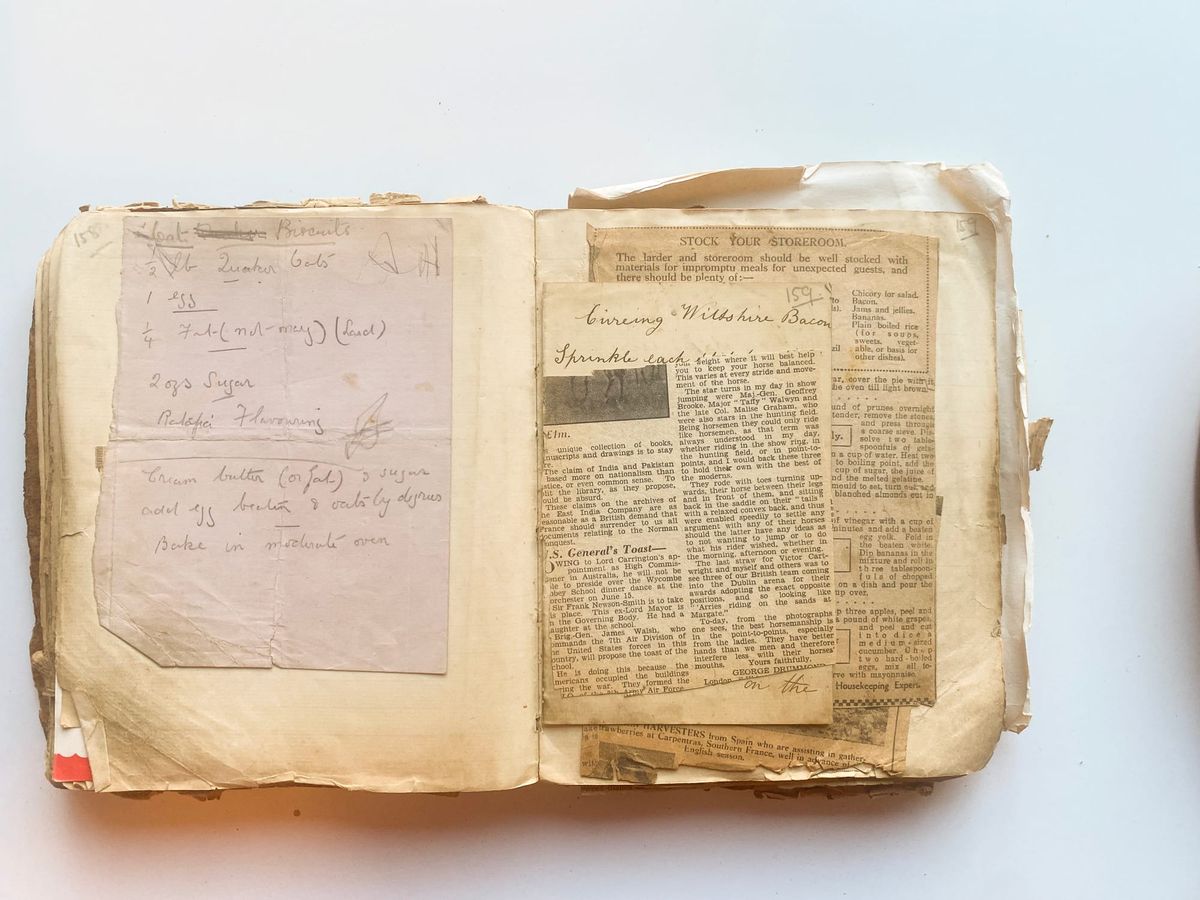 158
Biscuits
1/2 lb Quaker Oats
1 egg
1/4 Fat (not marg) (Lard)
2 ozs Sugar
Ratafia Flavouring
Cream butter (or fat) & sugar
add egg beaten & oats by degrees
Bake in moderate oven
157
STOCK YOUR STOREROOM.
The larder and storeroom should be well stocked with
materials for impromptu meals for unexpected guests, and
there should be plenty of:—
Chicory for salad.
Bacon.
Jams and jellies.
Bananas.
Plain boiled rice
(for soups,
sweets, veget-
able, or basis for
other dishes).
159
Cureing Wiltshire Bacon
Sprinkle each
Elm.
unique collection of books,
manuscripts and drawings is to stay
The claim of India and Pakistan
based more on nationalism than
or even common sense. To
the library, as they propose,
would be absurd.
These claims on the archives of
the East India Company are as
reasonable as a British demand that
France should surrender to us all
documents relating to the Norman
Conquest.
U.S. General's Toast—
OWING to Lord Carrington's ap-
pointment as High Commis-
sioner in Australia, he will not be
able to preside over the Wycombe
Abbey School dinner dance at the
Dorchester on June 15.
Sir Frank Newson-Smith is to take
his place. This ex-Lord Mayor is
on the Governing Body. He had a
daughter at the school.
Brig.-Gen. James Walsh, who
commands the 7th Air Division of
the United States forces in this
country, will propose the toast of the
school.
He is doing this because the
Americans occupied the buildings
during the war. They formed the
Army Air Force
your weight where it will best help
you to keep your horse balanced.
This varies at every stride and move-
ment of the horse.
The star turns in my day in show
jumping were Maj.-Gen. Geoffrey
Brooke, Major "Taffy" Walwyn and
the late Col. Malise Graham, who
were also stars in the hunting field.
Being horsemen they could only ride
like horsemen, as that term was
always understood in my day,
whether riding in the show ring, in
the hunting field, or in point-to-
points, and I would back these three
to hold their own with the best of
the moderns.
They rode with toes turning up-
wards, their horse between their legs
and in front of them, and sitting
back in the saddle on their "tails"
with a relaxed convex back, and thus
were enabled speedily to settle any
argument with any of their horses
should the latter have any ideas as
to not wanting to jump or to do
what his rider wished, whether in
the morning, afternoon or evening.
The last straw for Victor Cart-
wright and myself and others was to
see three of our British team coming
into the Dublin arena for their
awards adopting the exact opposite
positions, and so looking like
"'Arries riding on the sands at
Margate."
To-day, from the photographs
one sees, the best horsemanship is
in the point-to-points, especially
from the ladies. They have better
hands than we men and therefore
interfere less with their horses'
mouths.
Yours faithfully,
GEORGE DRUMMOND
London
on the
cover the pie with it
oven till light brown
of prunes overnight
tender, remove the stones,
and press through
a coarse sieve. Dis-
solve two table-
spoonfuls of gela-
a cup of water. Heat
to boiling point, add the
cup of sugar, the juice of
and the melted gelatine.
mould to set, turn out, and
blanched almonds cut in
of vinegar with a cup of
minutes and add a beaten
egg yolk. Fold in
the beaten white.
Dip bananas in the
mixture and roll in
three tablespoon-
fuls of chopped
on a dish and pour the
up over.
three apples, peel and
a pound of white grapes,
and peel and cut
into dice a
medium-sized
cucumber. Chop
two hard-boiled
eggs, mix all to-
with mayonnaise.
Housekeeping Expert
HARVESTERS from Spain who are assisting in gather-
strawberries at Carpentras, Southern France, well in advance
English season.